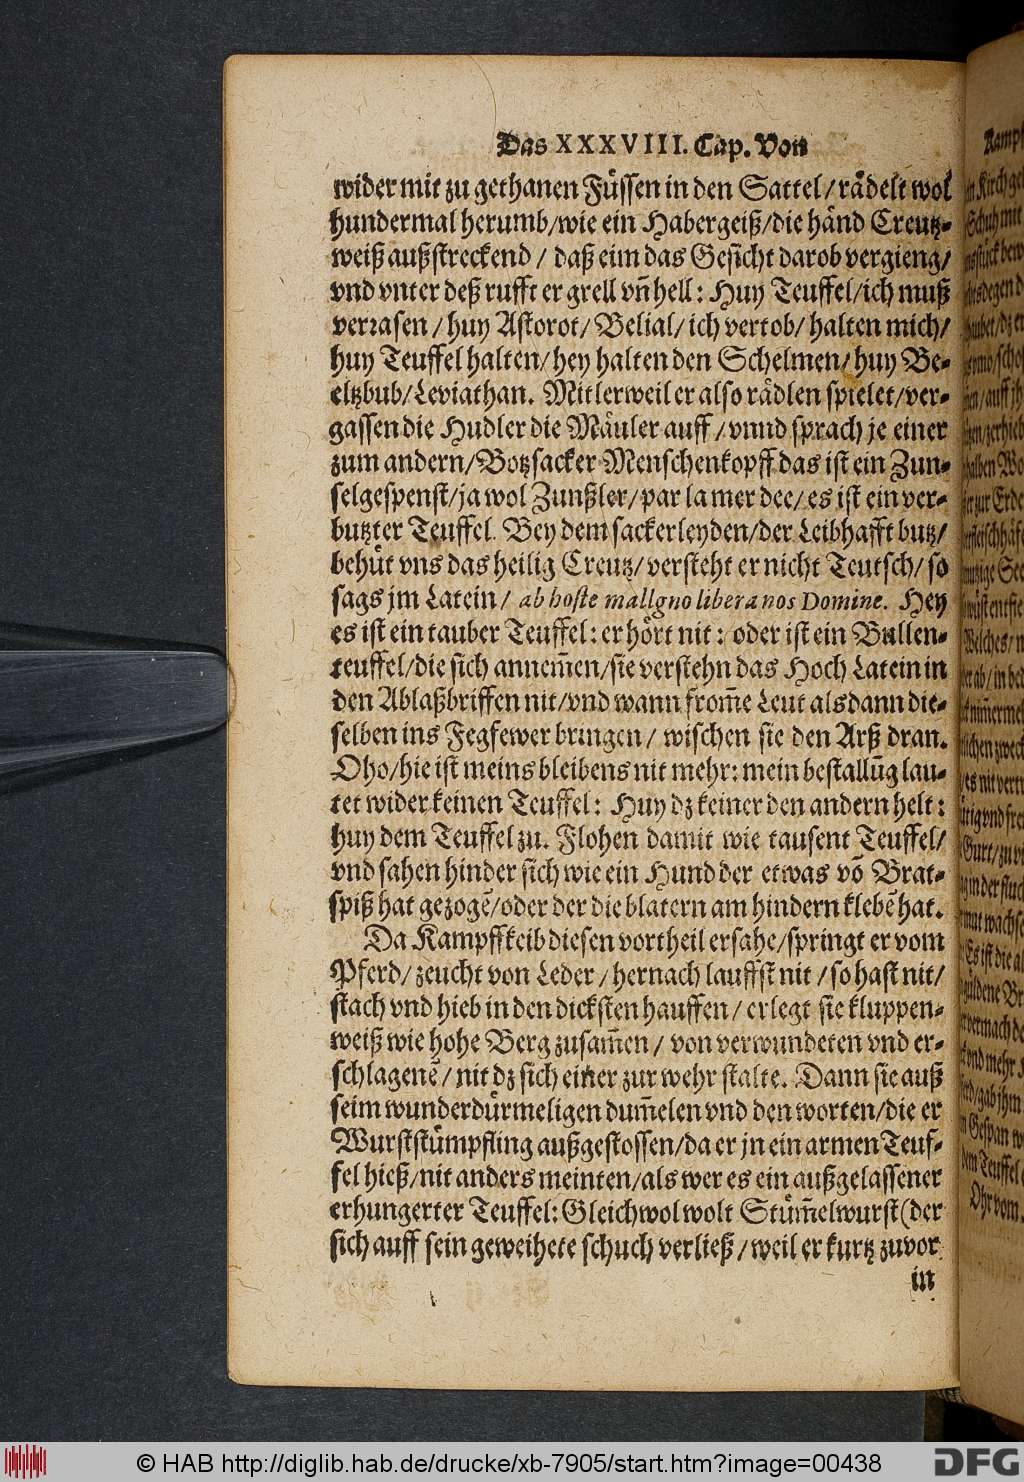 Das XXXVIII. Cap. Von
wider mit zu gethanen Füssen in den Sattel/rädelt wol
hundermal herumb/wie ein Habergeiß/die händ Creutz-
weiß außstreckend / daß eim das Gesicht darob vergieng/
vnd vnter deß rufft er grell vñ hell: Huy Teuffel/ich muß
verrasen /huy Astorot/Belial/ich vertob/halten mich/
huy Teuffel halten/hey halten den Schelmen/huy Be-
eltzbub/Leviathan. Mitlerweil er also rädlen spielet/ver-
gassen die Hudler die Mäuler auff/vnnd sprach je einer
zum andern/Botzsacker Menschenkopff das ist ein Zun-
selgespenst/ja wol Zunßler/par la mer dee/es ist ein ver-
butzter Teuffel. Bey dem sackerleyden/der Leibhafft butz/
behüt vns das heilig Creutz/versteht er nicht Teutsch/so
sags jm Latein/ ab hoste mallgno libera nos Domine. Hey
es ist ein tauber Teuffel: er hört nit: oder ist ein Bullen-
teuffel/die sich annem̃en/sie verstehn das Hoch Latein in
den Ablaßbriffen nit/vnd wann from̃e Leut alsdann die-
selben ins Fegfewer bringen/ wischen sie den Arß dran.
Oho/hie ist meins bleibens nit mehr: mein bestallũg lau-
tet wider keinen Teuffel: Huy dz keiner den andern helt:
huy dem Teuffel zu. Flohen damit wie tausent Teuffel/
vnd sahen hinder sich wie ein Hund der etwas võ Brat-
spiß hat gezogẽ/oder der die blatern am hindern klebẽ hat.
Da Kampffkeib diesen vortheil ersahe/springt er vom
Pferd/zeucht von Leder/hernach lauffst nit/so hast nit/
stach vnd hieb in den dicksten hauffen/ erlegt sie kluppen-
weiß wie hohe Berg zusam̃en / von verwundeten vnd er-
schlagenẽ/nit dz sich einer zur wehr stalte. Dann sie auß
seim wunderdürmeligen dum̃elen vnd den worten/die er
Wurststümpfling außgestossen/da er jn ein armen Teuf-
fel hieß/nit anders meinten/als wer es ein außgelassener
erhungerter Teuffel: Gleichwol wolt Stüm̃elwurst(der
sich auff sein geweihete schuch verließ/weil er kurtz zuvor
in
© HAB http://diglib.hab.de/drucke/xb-7905/start.htm?image=00438
DFG